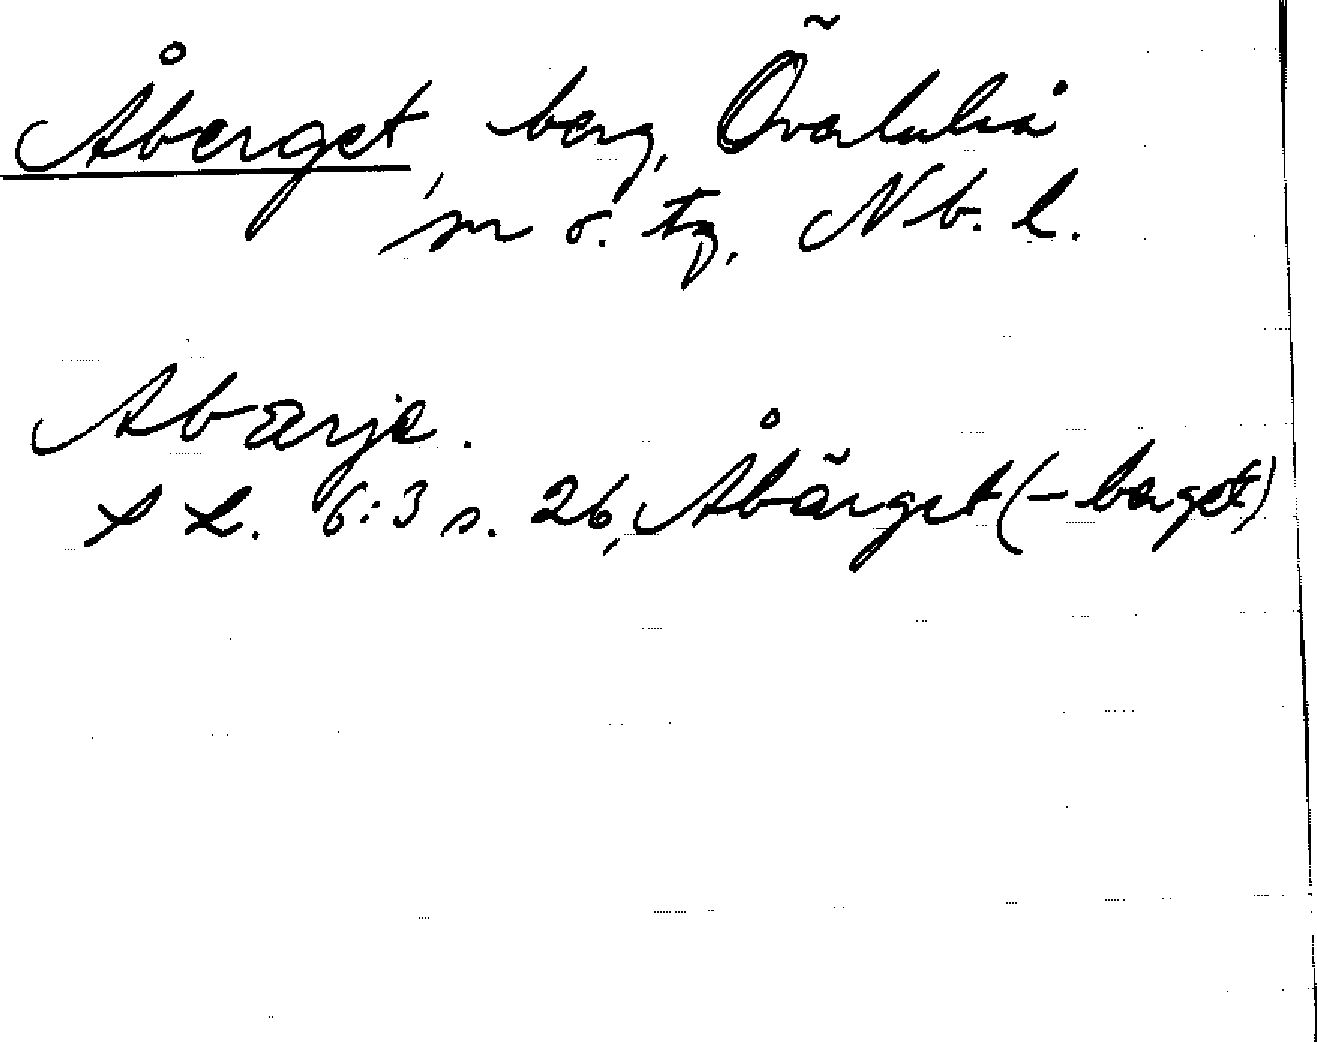 Åberget, berg, Överluleå
sn o. tg, Nb. l.
Abærje.
S L. 6:3 s. 26, Åbärget (-berget)